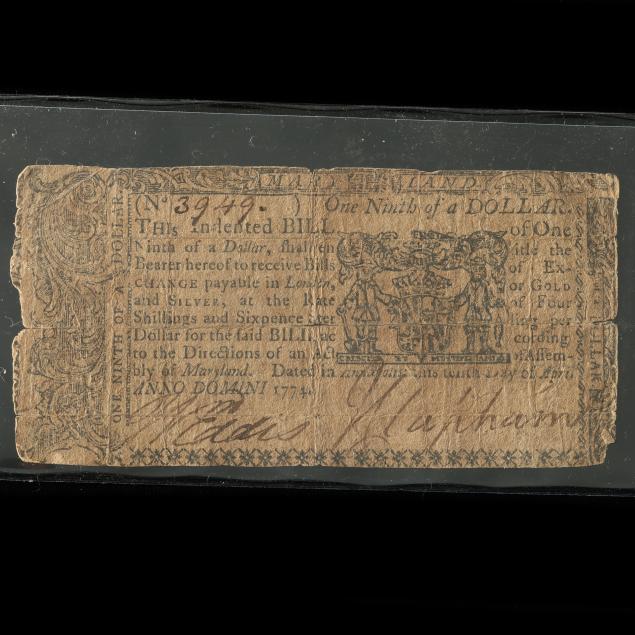 MARYLAND
(No 3949. ) One Ninth of a DOLLAR.
THIs Indented BILL of One
Ninth of a Dollar, shall en title the
Bearer hereof to receive Bills of Ex-
CHANGE payable in London, or GOLD
and SILVER, at the Rate of Four
Shillings and Sixpence Ster ling per
Dollar for the said BILL, ac cording
to the Directions of an Act of Assem-
bly of Maryland. Dated in Annapolis this tenth Day of April
ANNO DOMINI 1774.
Eddis J Clapham
ONE NINTH OF A DOLLAR